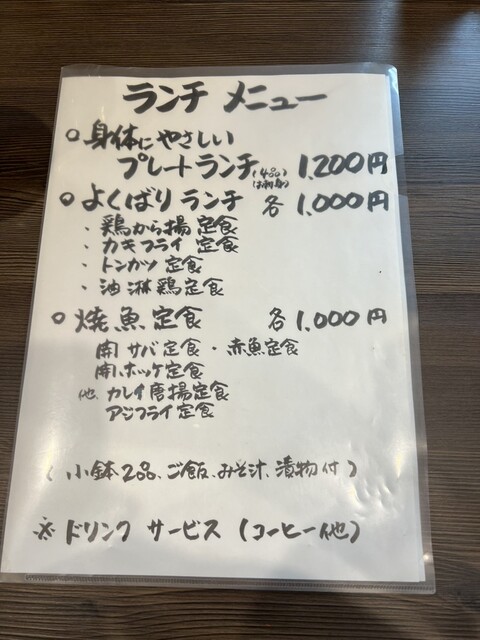 ランチ メニュー
○ 身体にやさしい
プレートランチ (4品) 1,200円
○ よくばり ランチ 各 1,000円
・ 鶏から揚 定食
・ カキフライ 定食
・ トンカツ 定食
・ 油淋鶏定食
○ 焼魚定食 各 1,000円
開 サバ定食・赤魚定食
開 ホッケ定食
他、カレイ唐揚定食
アジフライ定食
(小鉢2品、ご飯、みそ汁、漬物付)
※ ドリンク サービス (コーヒー他)